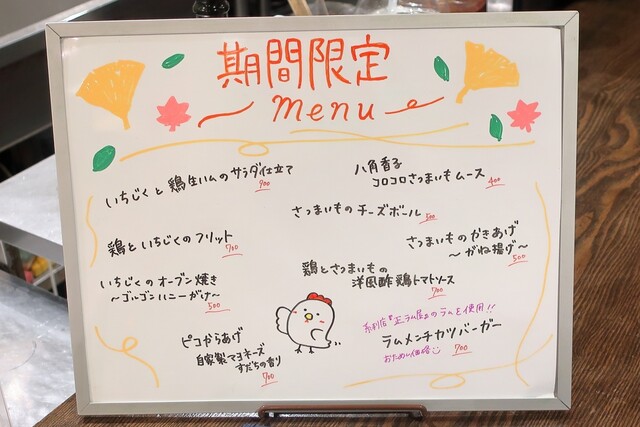 期間限定
menu
いちじくと鶏生ハムのサラダ仕立て
900
八角香る
コロコロさつまいもムース
400
さつまいものチーズボール
500
鶏といちじくのフリット
700
さつまいものかきあげ
～がね揚げ～
500
いちじくのオーブン焼き
～ゴルゴンハニーがけ～
500
鶏とさつまいもの
洋風酢鶏トマトソース
700
ピコからあげ
自家製マヨネーズ
すだちの香り
700
系列店 正ラム屋 のラムを使用!!
ラムメンチカツバーガー
おためし価格
700